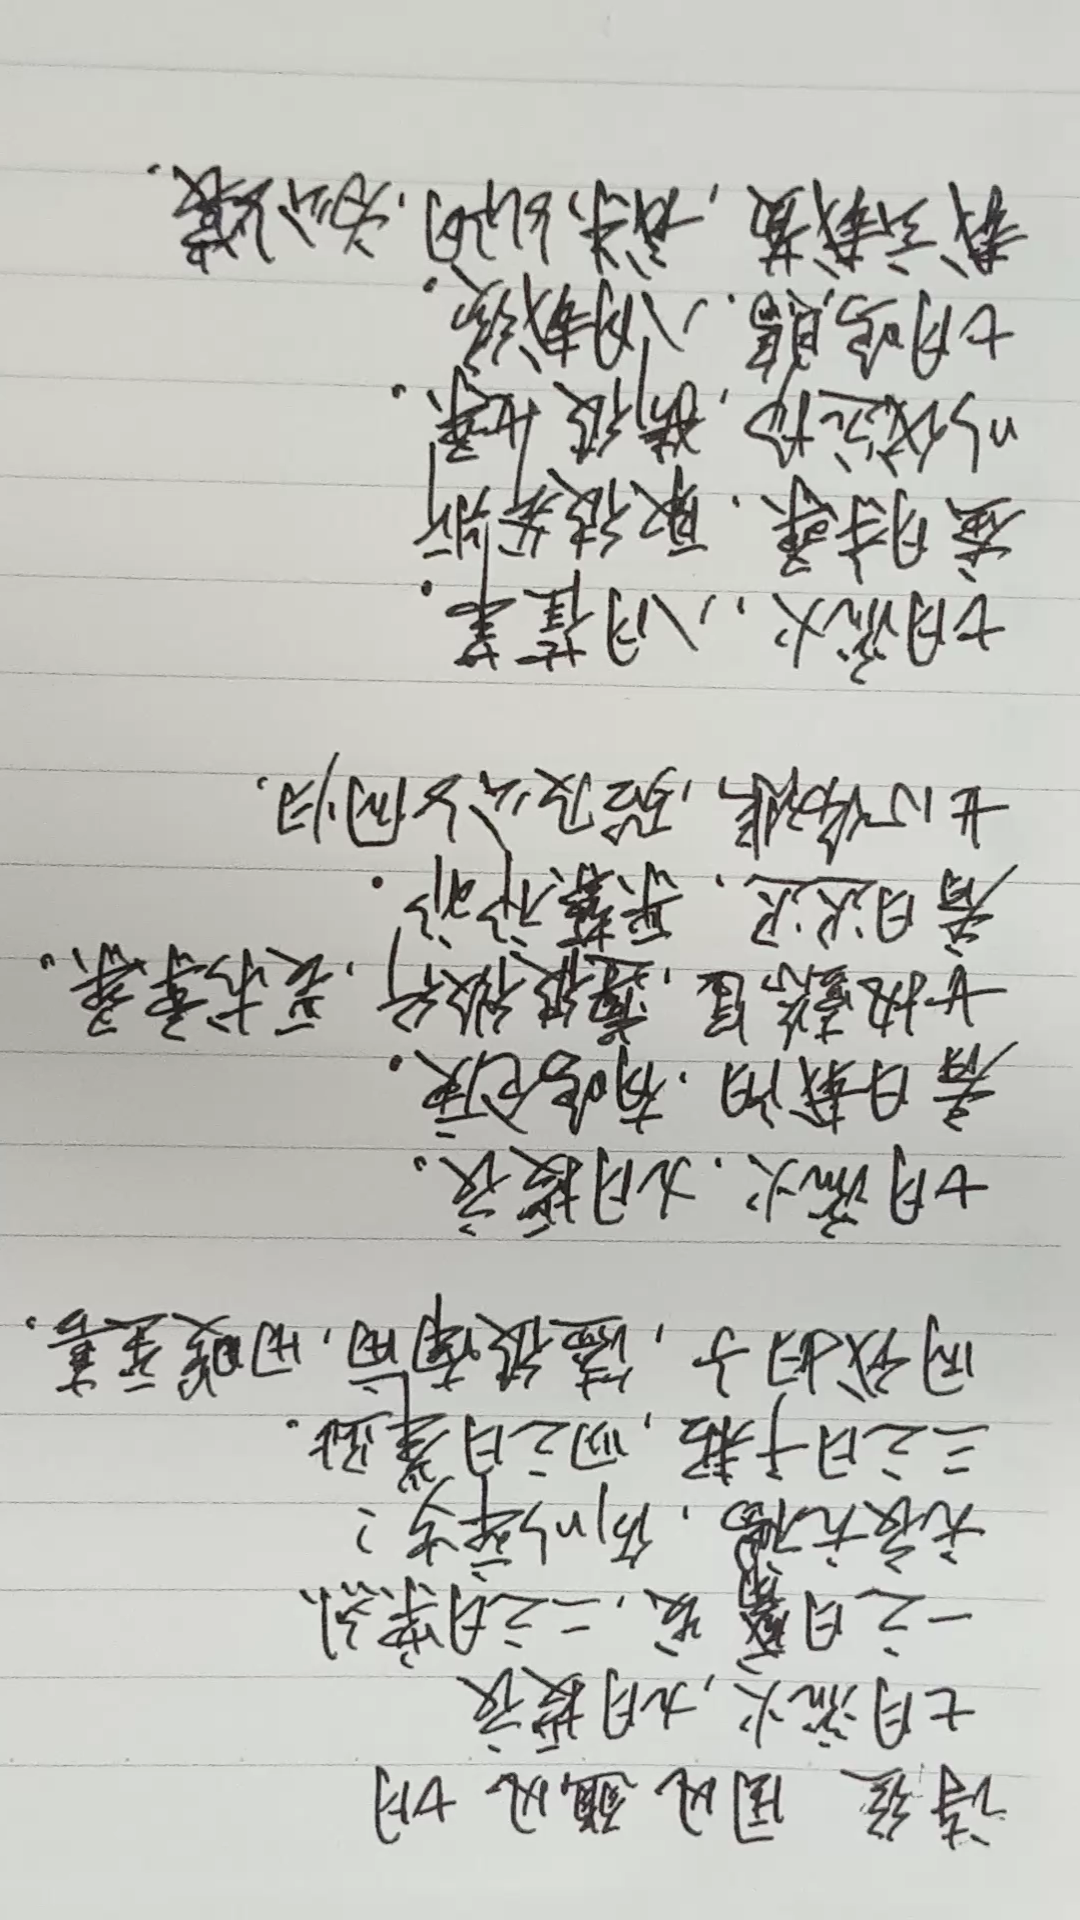 诗经 国风 豳风 七月
七月流火,九月授衣
一之日觱发,二之日栗烈
无衣无褐,何以卒岁?
三之日于耜,四之日举趾.
同我妇子,馌彼南亩,田畯至喜.
七月流火,九月授衣。
春日载阳,有鸣仓庚.
女执懿筐,遵彼微行,爰求柔桑。
春日迟迟,采蘩祁祁.
女心伤悲,殆及公子同归.
七月流火,八月萑苇.
蚕月条桑,取彼斧斨
以伐远扬,猗彼女桑.
七月鸣鵙,八月载绩.
载玄载黄,我朱孔阳,为公子裳.